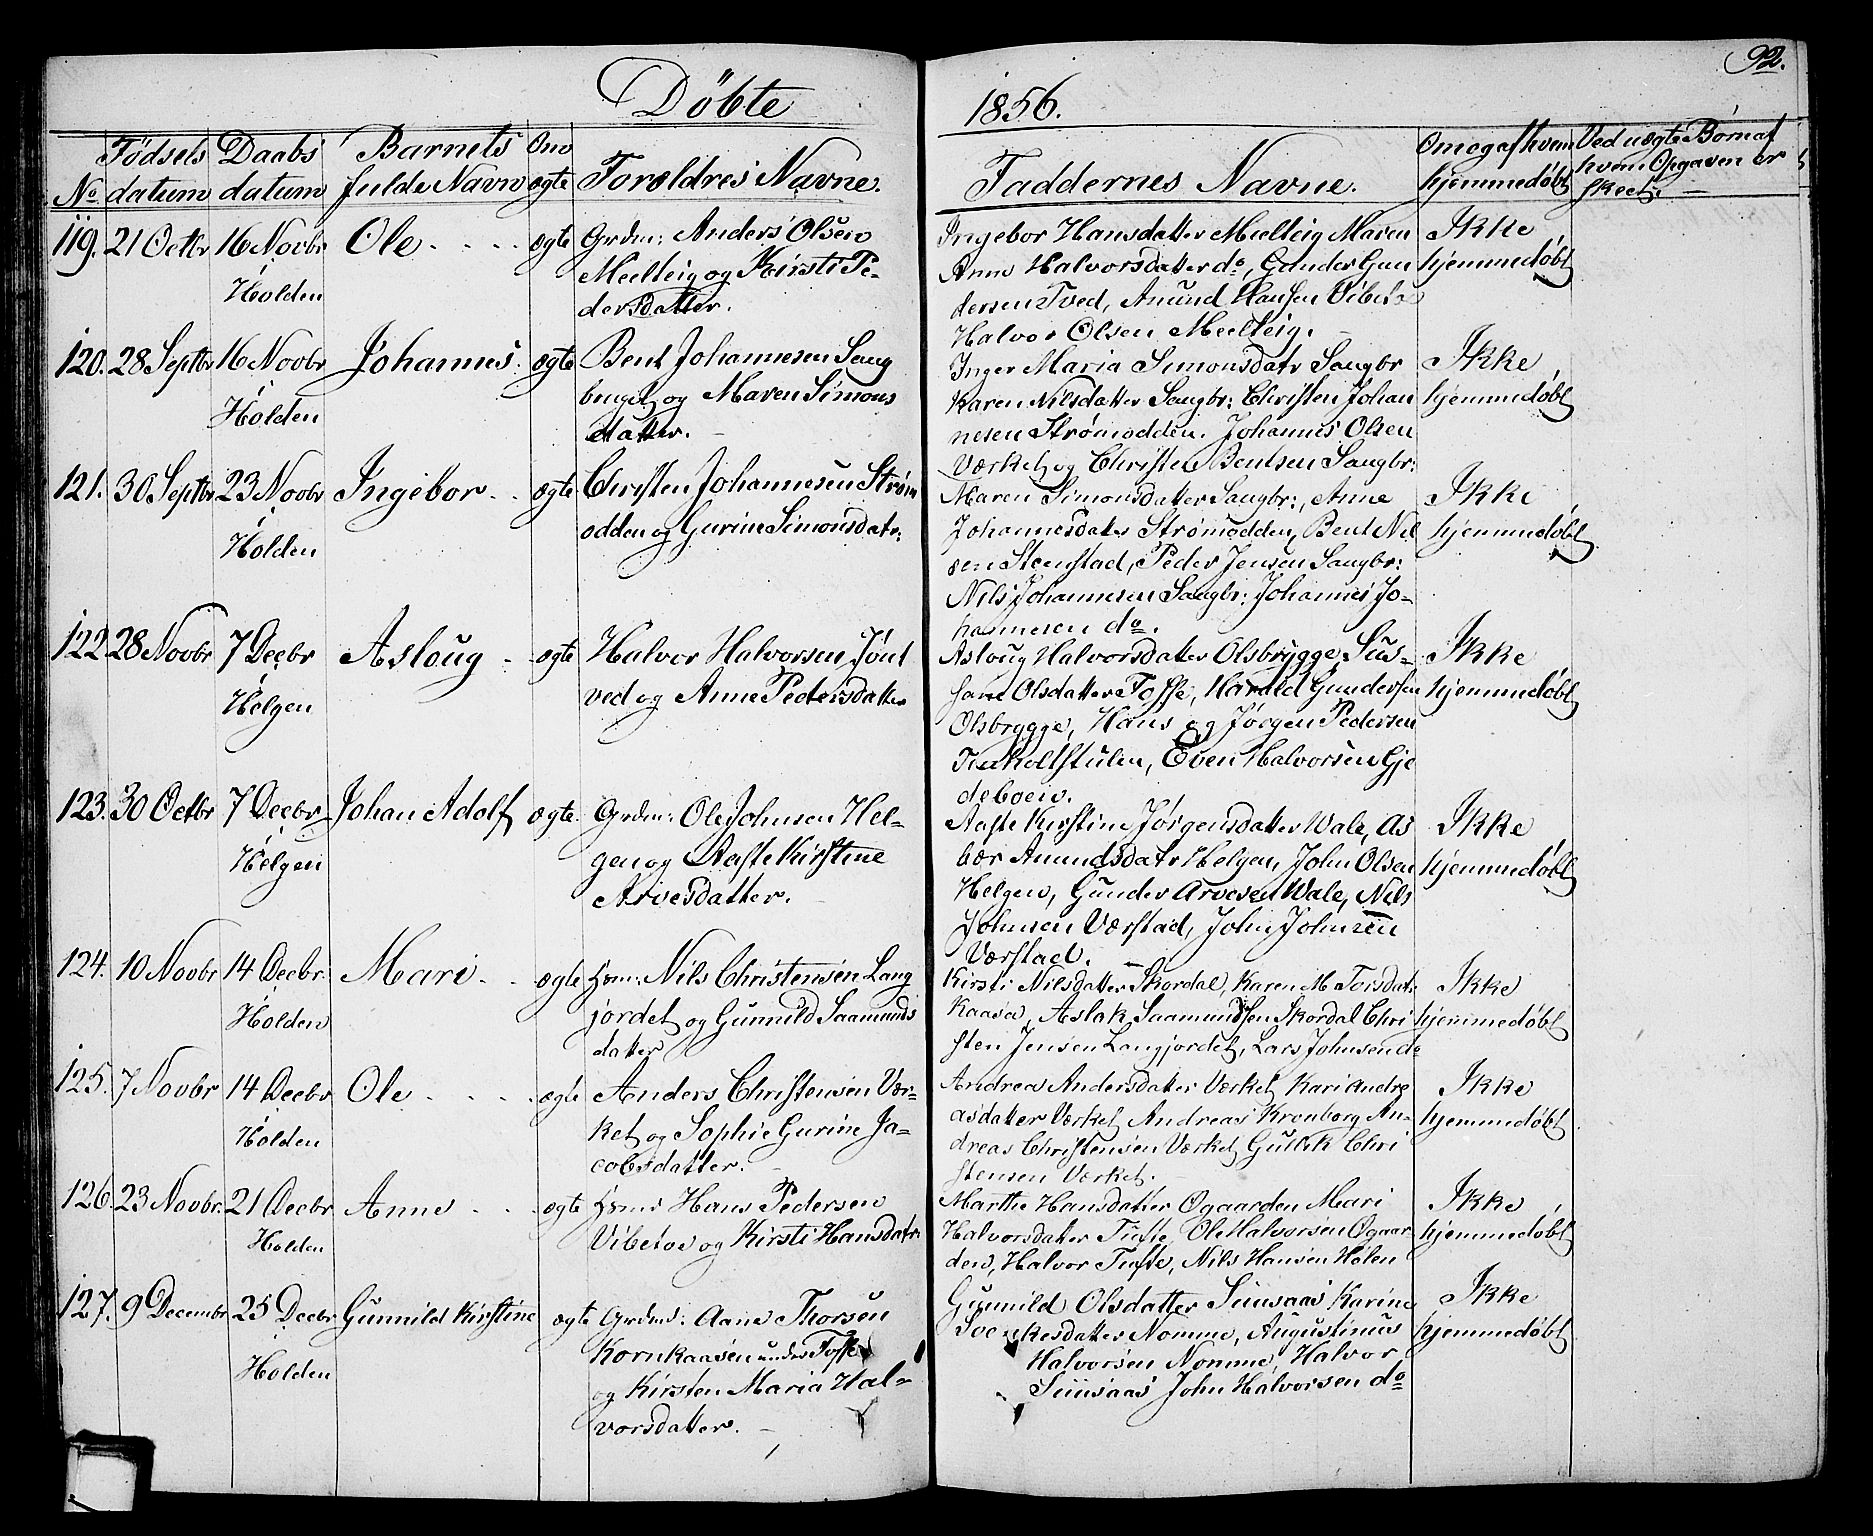 Döbte
1856.
92.
No
Födsels datum
Daabs datum
Barnets fulde Navn
Om ægte
Forældres Navne.
Faddernes Navne.
Om og af hvem hjemmedøbt
Ved uægte Børn af hvem Opgaven er skeet.
119. 21 Octbr 16 Novbr Ole ægte Grdm: Anders Olsen
Holden
Melteig og Kirsti Pe-
dersdatter.
Ingebor Hansdatter Melteig Maren
Anne Halvorsdatter do, Gunder Gun
dersen Tved, Anund Hansen Vibeto
Halvor Olsen Melteig.
Ikke
hjemmedøbt
120. 28 Septbr 16 Novbr Johannes. ægte Bent Johannesen Saug
Holden
bruget og Maren Simons
datter.
Inger Maria Simonsdatr Saugbr
Karen Nilsdatter Saugbr: Christen Johan
nesen Strømodden. Johannes Olsen
Værket og Christen Bentsen Saugbr:
Ikke
hjemmedøbt
121. 30 Septbr 23 Novbr Ingebor ægte Christen Johannesen Strøm
Holden
odden og Gurine Simonsdatr:
Maren Simonsdatter Saugbr:, Anne
Johannesdatter Strømodden, Bent Nil
sen Steenstad, Peder Jensen Saugbr:
Nils Johannesen Saugbr: Johannes Jo-
hannesen do.
Ikke
hjemmedøbt
122 28 Novbr 7 Decbr Asloug ægte Halvor Halvorsen Jønt
Helgen
ved og Anne Pedersdatter
Asloug Halvorsdatter Olsbrygge, Sus-
sane Olsdatter Tosse, Harald Gundersen
Olsbrygge, Hans og Jørgen Pedersen
Even Halvorsen Gje
deboein.
Ikke
hjemmedøbt
123. 30 Octbr 7 Decbr Johan Adolf ægte. Grdm: Ole Johnsen Hel-
Helgen
gen og Aaste Kirstine
Arvesdatter.
Aaste Kirstine Jörgensdatter Wale, As
bør Anundsdatr Helgen, John Olsen
Helgen, Gunder Arvesen Wale, Nils
Johnsen Værstad, John Johnsen
Værstad.
Ikke
hjemmedøbt
124. 10 Novbr 14 Decbr. Mari ægte Hsm: Nils Christensen Lang
Holden
jordet og Gunnild Saamunds
datter
Kirsti Nilsdatter Skordal, Karen M Torsdatr
Kaasa, Aslak Saamundsen Skordal Chri
sten Jensen Langjordet, Lars Johnsen do
Ikke
hjemmedøbt
125. 7 Novbr 14 Decbr Ole ægte Anders Christensen Vær-
Holden
ket og Sophie Gurine Ja-
cobsdatter.
Andrea Andersdatter Værket, Kari Andre
asdatter Værket Andreas Kronborg An-
dreas Christensen Værket Gullik Chri
stensen Værket.
Ikke
hjemmedøbt
126. 23 Novbr. 21 Decbr Anne ægte Hsm: Hans Pedersen
Holden
Vibetoe og Kirsti Hansdatr
Marthe Hansdatter Øgaarden Mari
Halvorsdatter Tufte, Ole Halvorsen Øgaar
den, Halvor Tufte, Nils Hansen Holen
Ikke
hjemmedøbt
127. 9 Decembr 25 Decbr Gunnild Kirstine ægte Grdm: Aane Thorsen
Holden
Kornkaasen under Tosse
og Kirsten Maria Hal-
vorsdatter.
Gunnild Olsdatter Suusaas Karine
Svenkesdatter Nomme, Augustinus
Halvorsen Nomme, Halvor
Suusaas John Halvorsen do
Ikke
hjemmedøbt